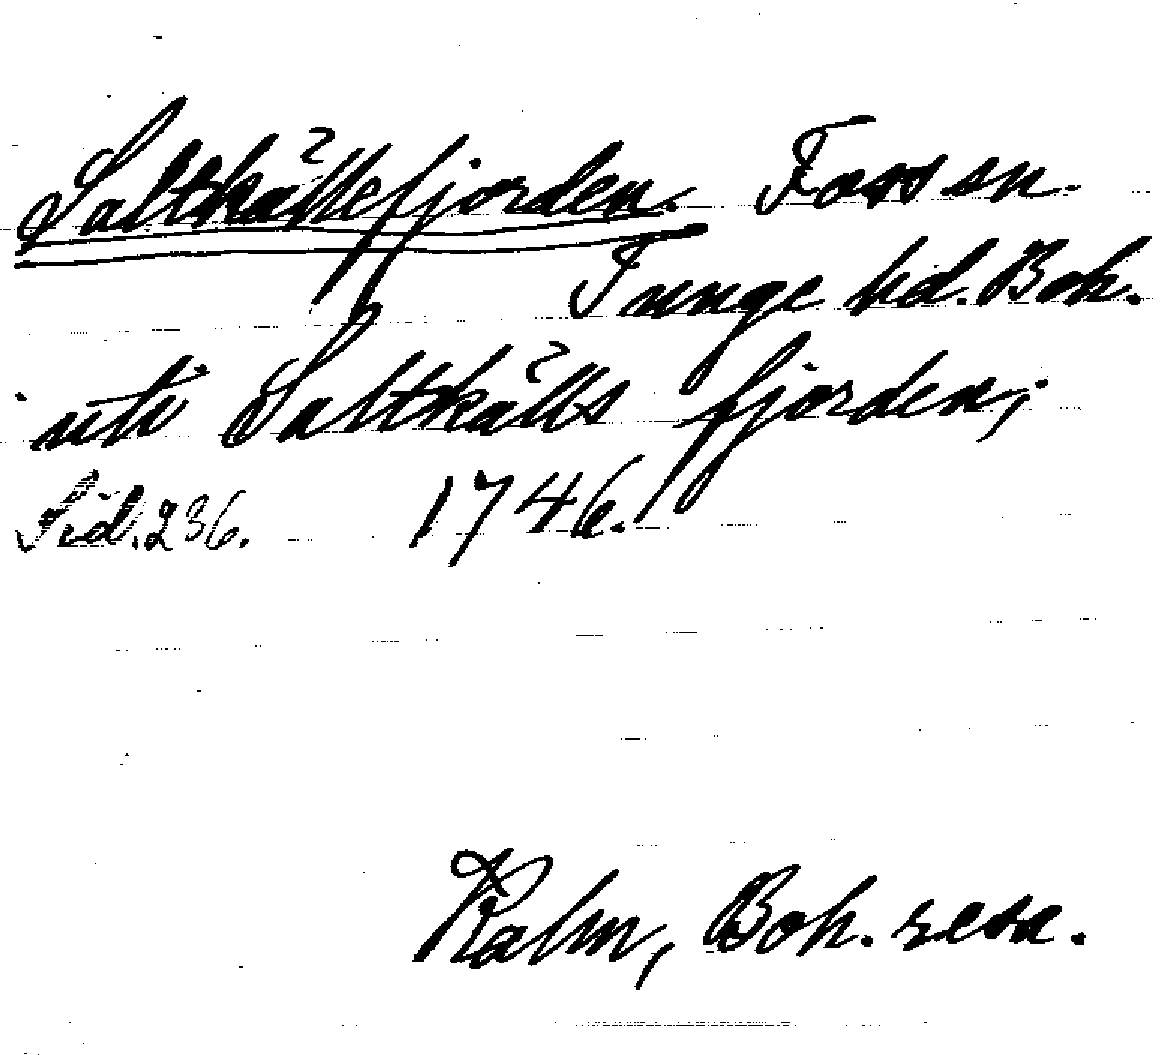 Saltkällefjorden. Foss sn.
Tunge hd. Boh.
uti Saltkälls fjorden,
Sid. 236. 1746.
Kalm, Boh. resa.